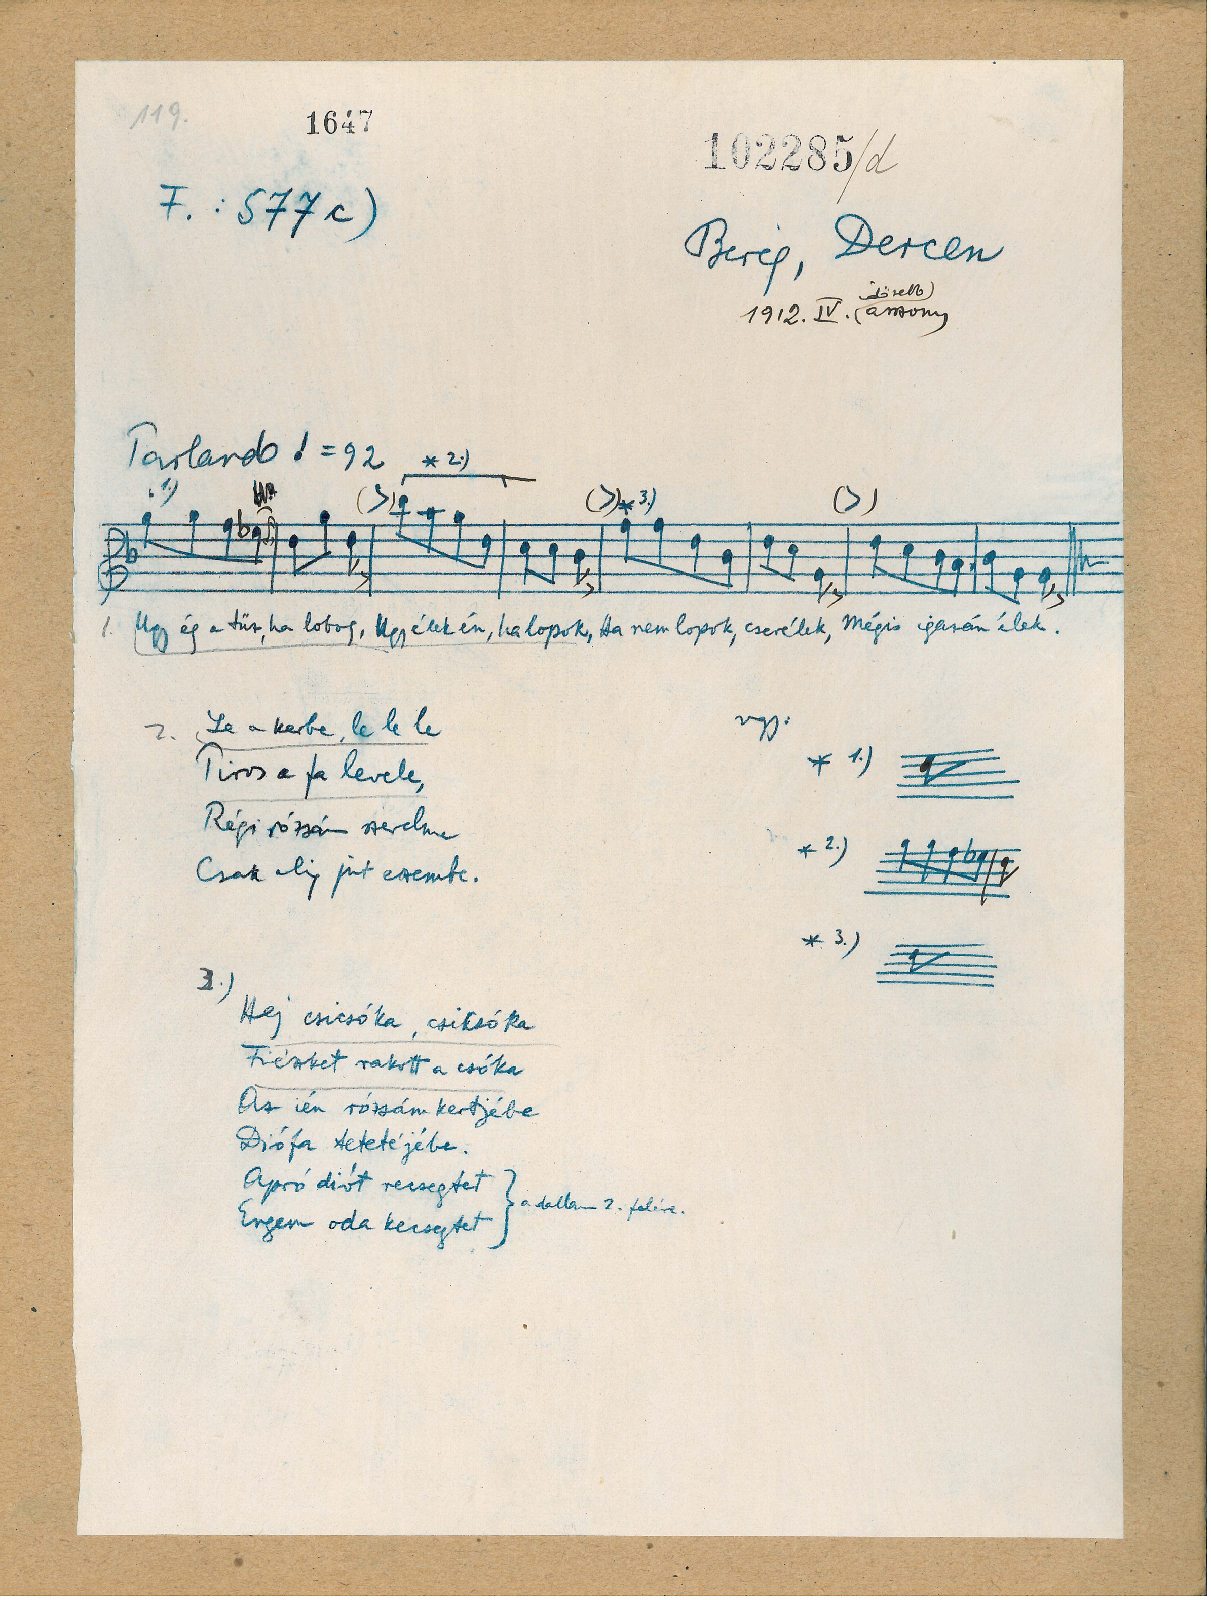 119.
1647
102285/d
F. : 577 c)
Bereg, Dercen
idősebb)
1912. IV. (asszony
Parlando = 92
* 2.)
1)
(>)
(>) * 3.)
(>)
1. Ugy ég a tüz, ha lobog, Ugy élek én, ha lopok, Ha nem lopok, cserélek, Mégis igazán élek.
2. Le a kerbe, le le le
Piros a fa levele,
Régi rózsám szerelme
Csak alig jut eszembe.
vagy:
* 1.)
* 2.)
* 3.)
3.)
Hej csicsóka, csikcsóka
Fiészket rakott a csóka
Az ién rózsám kertjébe
Diófa tetetéjébe.
Apró diót recsegtet
Engem oda kecsegtet } a dallam 2. felére.